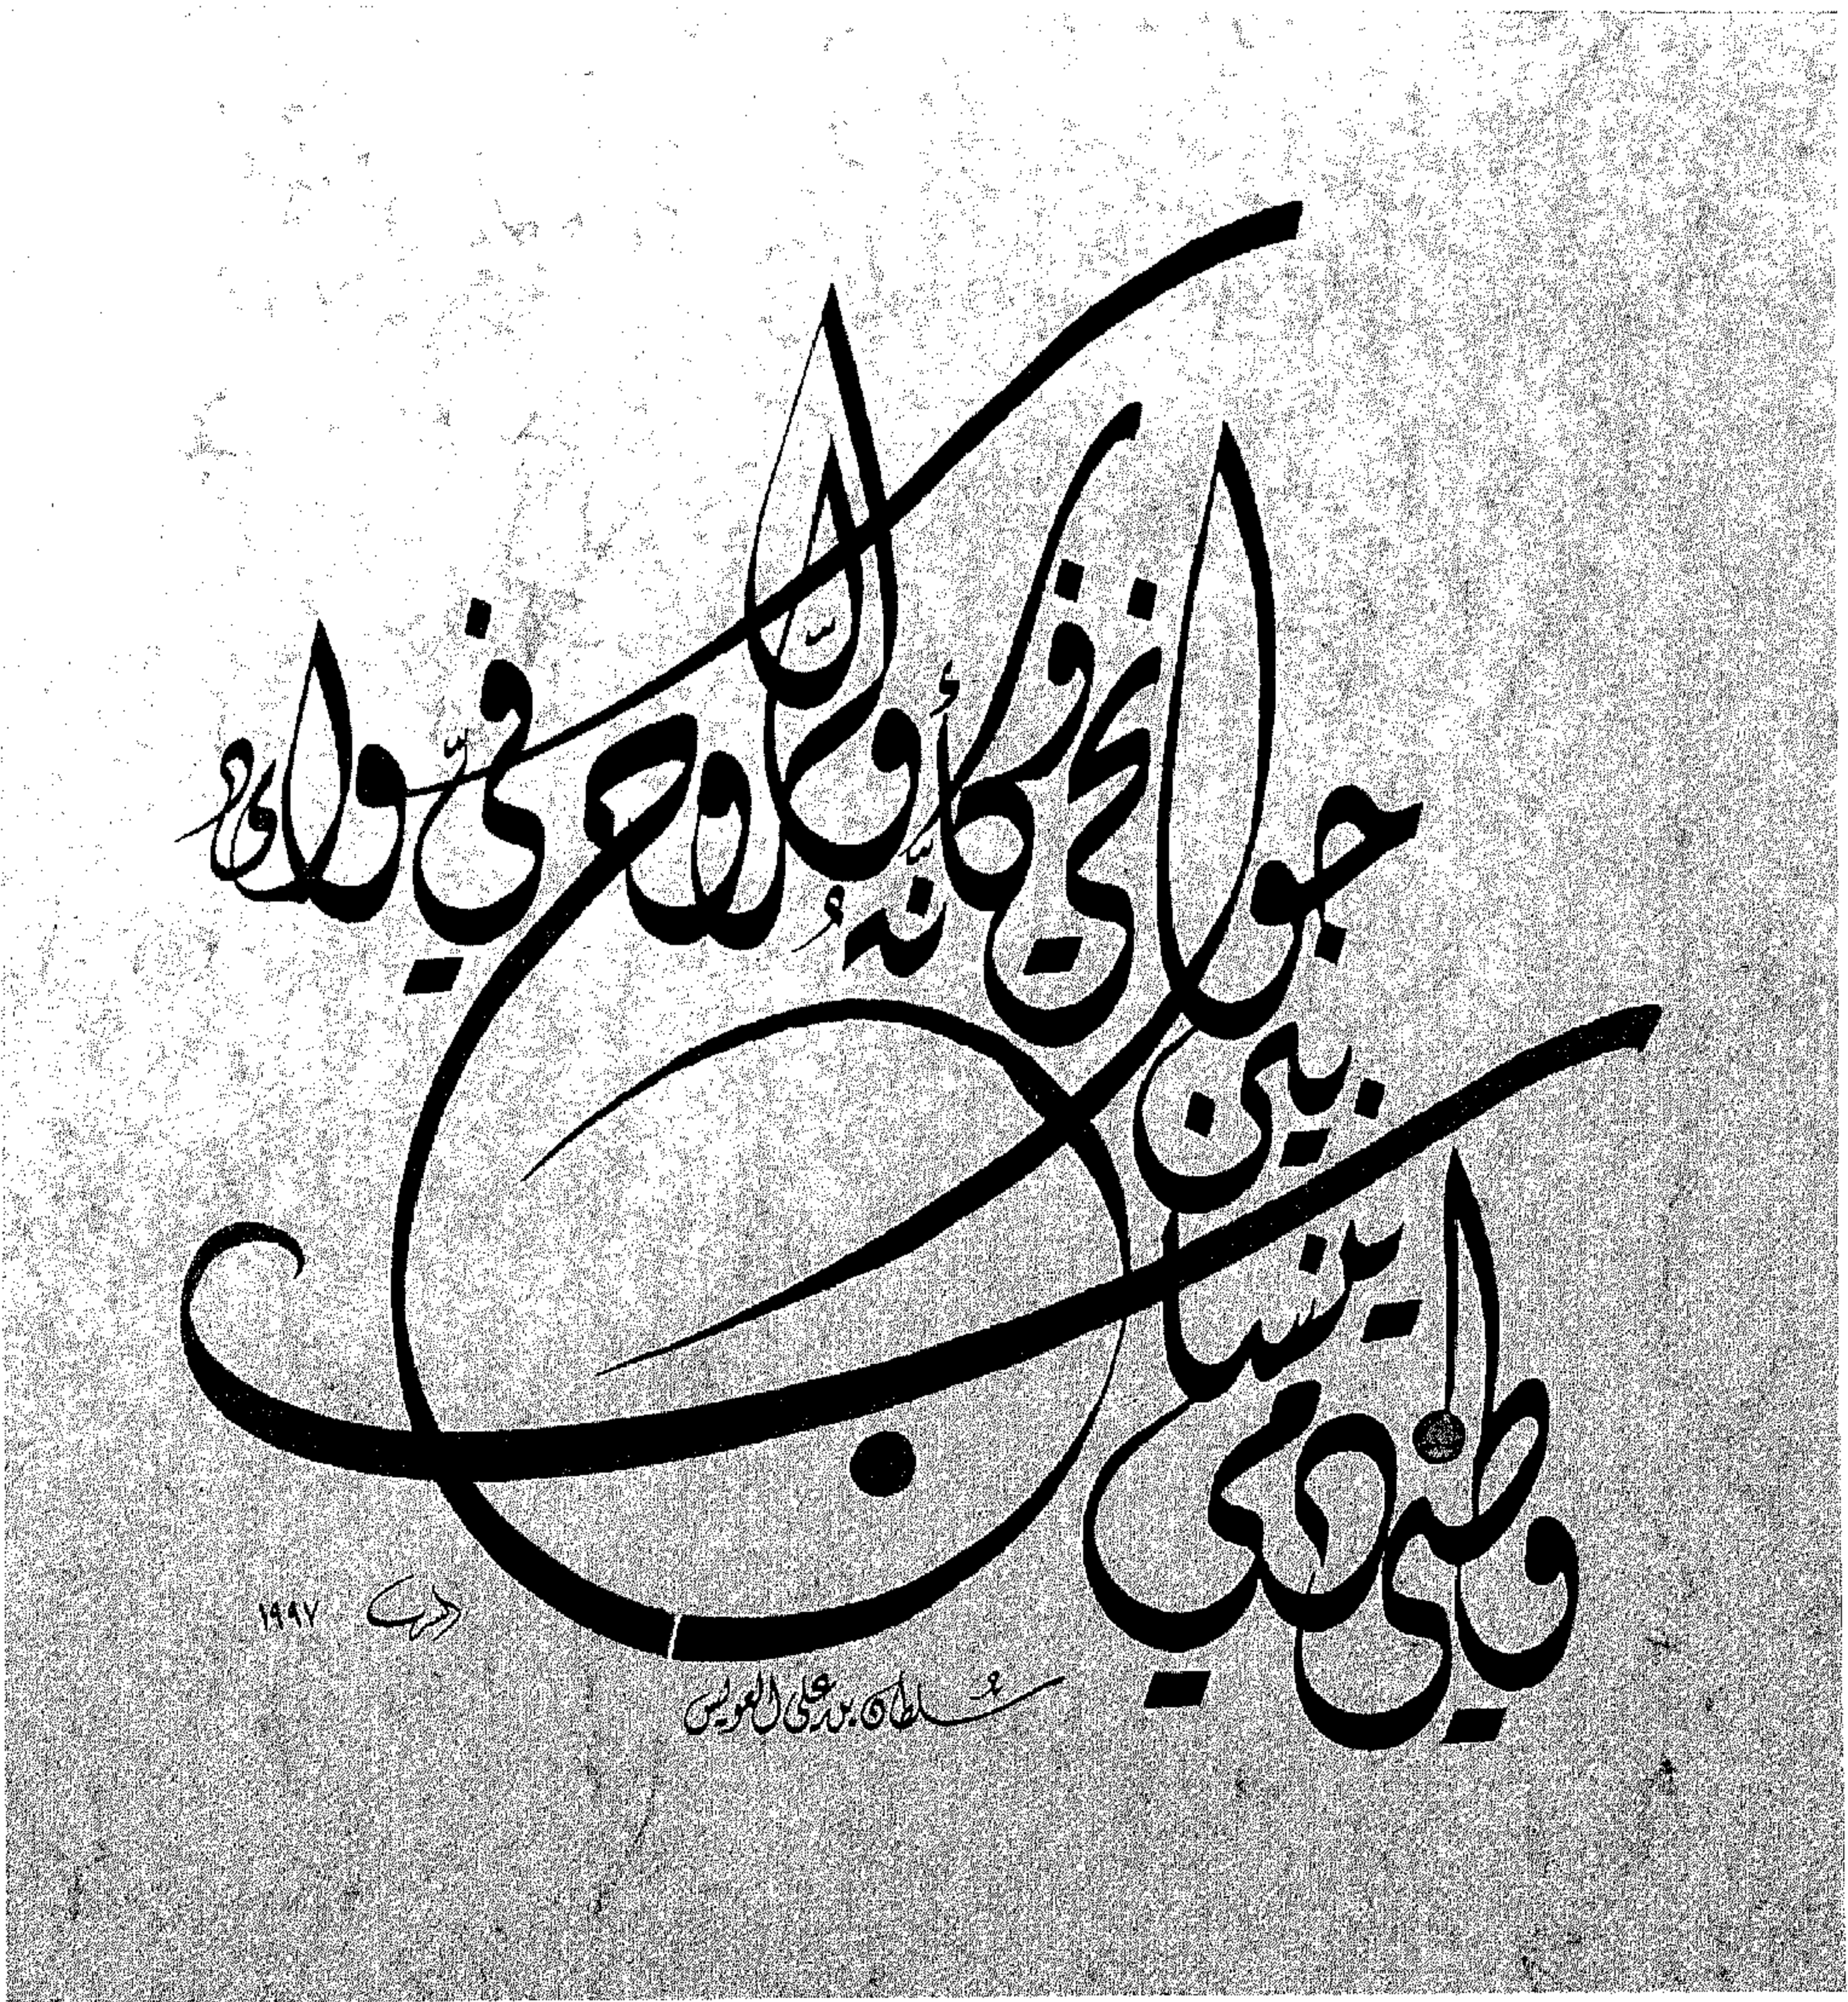 وطني دمي ينساب بين جوانحي
فكأنّهُ والروح فيّ سواءُ
سلطان بن علي العويس
١٩٩٧